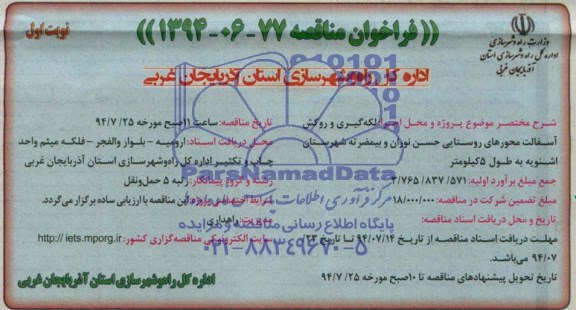 (( فراخوان مناقصه ۷۷-۰۶-۱۳۹۴ ))
نوبت اول
وزارت راه و شهرسازی
اداره کل راه و شهرسازی استان
آذربایجان غربی
اداره کل راه و شهرسازی استان آذربایجان غربی
شرح مختصر موضوع پروژه و محل اجرا: لکه‌گیری و روکش
آسفالت محورهای روستایی حسن نوران و بیمضرته شهرستان
اشنویه به طول ۵ کیلومتر
جمع مبلغ برآورد اولیه: ۳/۷۶۵/۸۳۷/۵۷۱
مبلغ تضمین شرکت در مناقصه: ۱۸/۰۰۰/۰۰۰
تاریخ و محل دریافت اسناد مناقصه:
مهلت دریافت اسناد مناقصه از تاریخ ۹۴/۰۷/۱۴ تا تاریخ ۲۳
۹۴/۰۷ می‌باشد.
تاریخ تحویل پیشنهادهای مناقصه تا ۱۰ صبح مورخه ۹۴/۷/۲۵
تاریخ مناقصه: ساعت ۱۱ صبح مورخه ۹۴/۷/۲۵
محل دریافت اسناد: ارومیه - بلوار والفجر - فلکه میثم واحد
چاپ و تکثیر اداره کل راه‌وشهرسازی استان آذربایجان غربی
رشته و گروه پیمانکار: رتبه ۵ حمل‌ونقل
این مناقصه با ارزیابی ساده برگزار می‌گردد.
مدیریت راهداری
سایت الکترونیکی مناقصه‌گزاری کشور: http:// iets.mporg.ir
اداره کل راه‌وشهرسازی استان آذربایجان غربی
پارس نماد داده‌ها
ParsNamadData
مرکز فرآوری اطلاعات پارس نماد داده‌ها
پایگاه اطلاع رسانی مناقصه و مزایده
۰۲۱-۸۸۳۴۹۶۷۰-۵